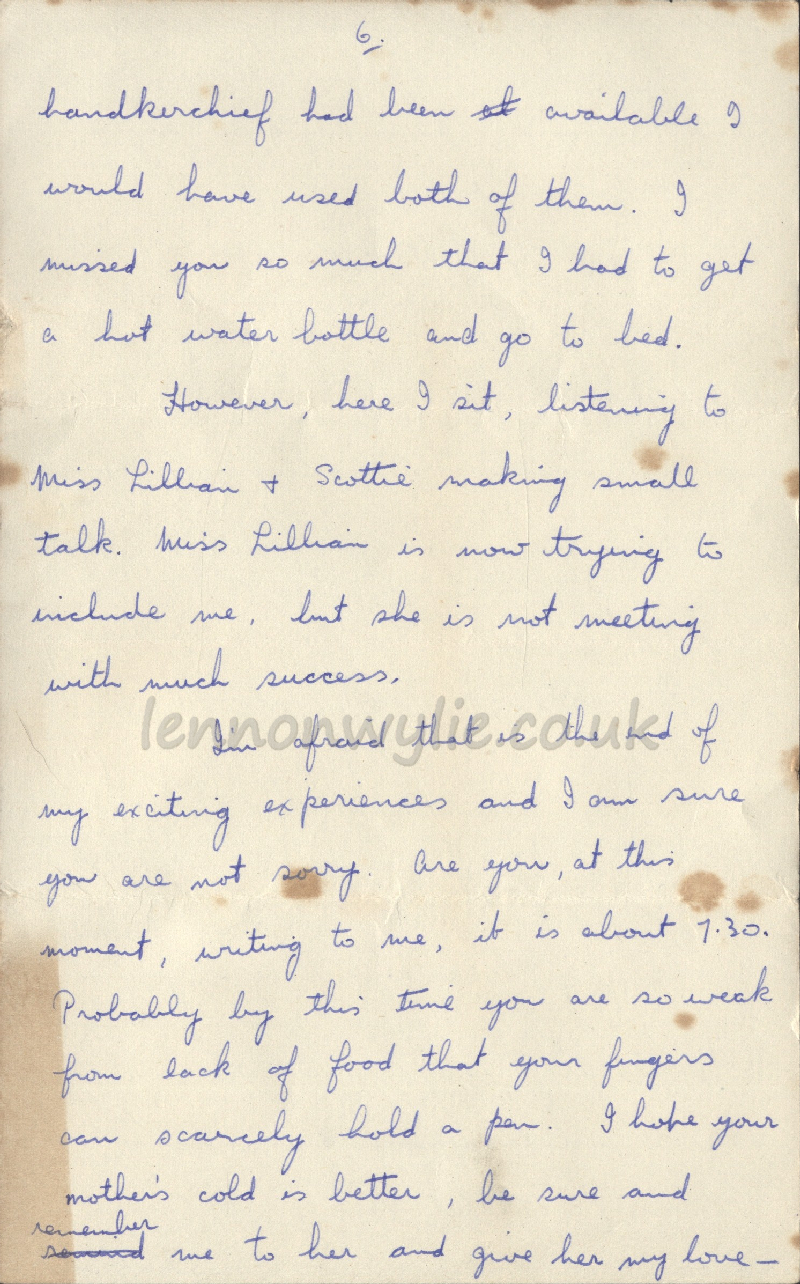 6.
handkerchief had been at available I
would have used both of them. I
missed you so much that I had to get
a hot water bottle and go to bed.
However, here I sit, listening to
Miss Lillian + Scottie making small
talk. Miss Lillian is now trying to
include me, but she is not meeting
with much success.
lennonwylie.co.uk
I'm afraid that is the end of
my exciting experiences and I am sure
you are not sorry. Are you, at this
moment, writing to me, it is about 7.30.
Probably by this time you are so weak
from lack of food that your fingers
can scarcely hold a pen. I hope your
mother's cold is better, be sure and
remember
remind me to her and give her my love —